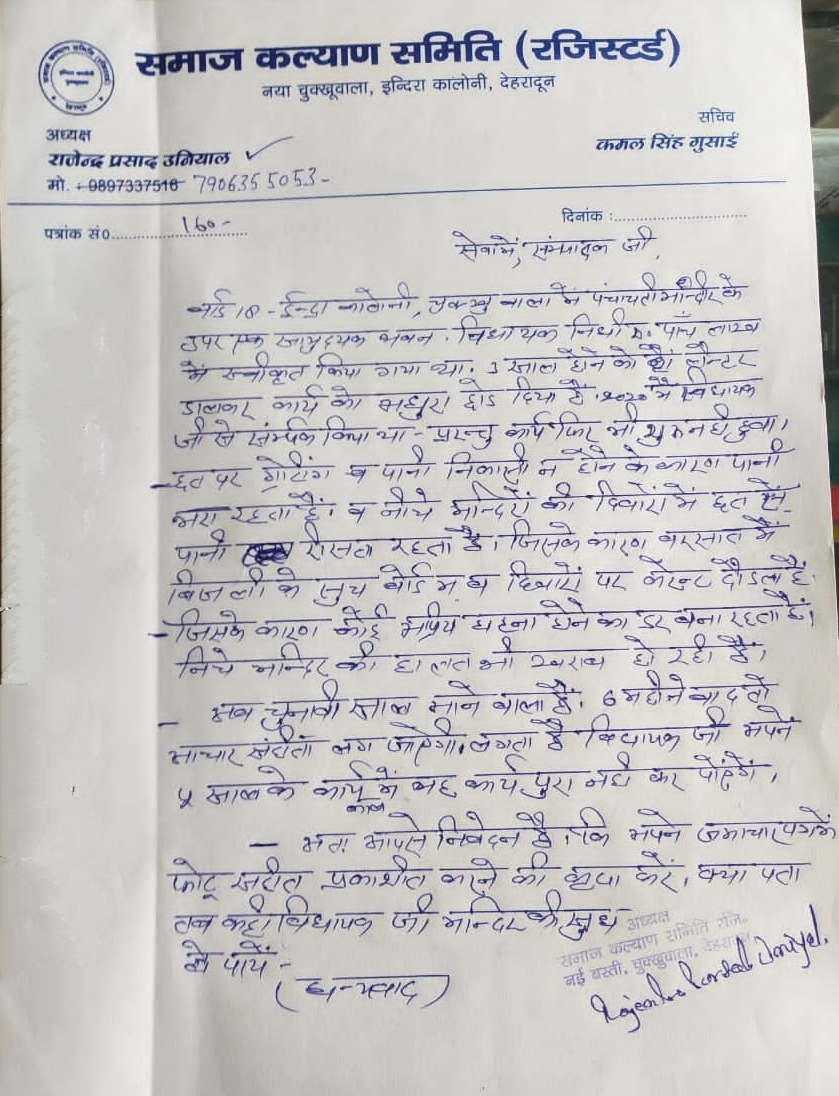 समाज कल्याण समिति (रजिस्टर्ड)
नया चुक्खूवाला, इन्दिरा कालोनी, देहरादून
अध्यक्ष
राजेन्द्र प्रसाद उनियाल
मो. 9897337516 7906355053-
सचिव
कमल सिंह गुसाईं
पत्रांक सं0 160-
दिनांक :
सेवामें, सम्पादक जी,
वार्ड 18 - ईन्द्रा कालोनी, चुक्खु वाला में पंचायती मन्दिर के
उपर एक सामुदायक भवन. विधायक निधी रु. पाँच लाख
में स्वीकृत किया गया था. 3 साल होने को है। लैन्टर
डालकर कार्य को अधुरा छोड दिया है. 2020 में विधायक
जी से संर्म्पक किया था - परन्तु कार्य फिर भी शुरु नही हुवा।
- छत पर ग्रोटींग व पानी निकासी न होने के कारण पानी
भरा रहता है। व नीचे मन्दिरों की दिवारों में छत से
पानी रीसता रहता है। जिसके कारण बरसात में
बिजली के सुच बोर्ड में व दिवारों पर केरन्ट दौडता है.
- जिसके कारण कोई अप्रिय घटना होने का डर बना रहता है।
निचे मन्दिर की हालत भी खराब हो रही है।
- अब चुनावी साल आने वाला है. 6 महीने बाद तो
आचार संहीता लग जाऐगी. लगता है विधायक जी अपने
5 साल के कार्य काल में यह कार्य पुरा नही कर पाऐंगें।
- अतः आपसे निवेदन है। कि अपने समाचार पत्र में
फोटू सहीत प्रकाशीत करने की कृपा करें, क्या पता
तब कही विधायक जी मन्दिर की सुध
ले पायें -
(धन्यवाद)
अध्यक्ष
समाज कल्याण समिति रजि.
नई बस्ती, चुक्खुवाला, देहरादून